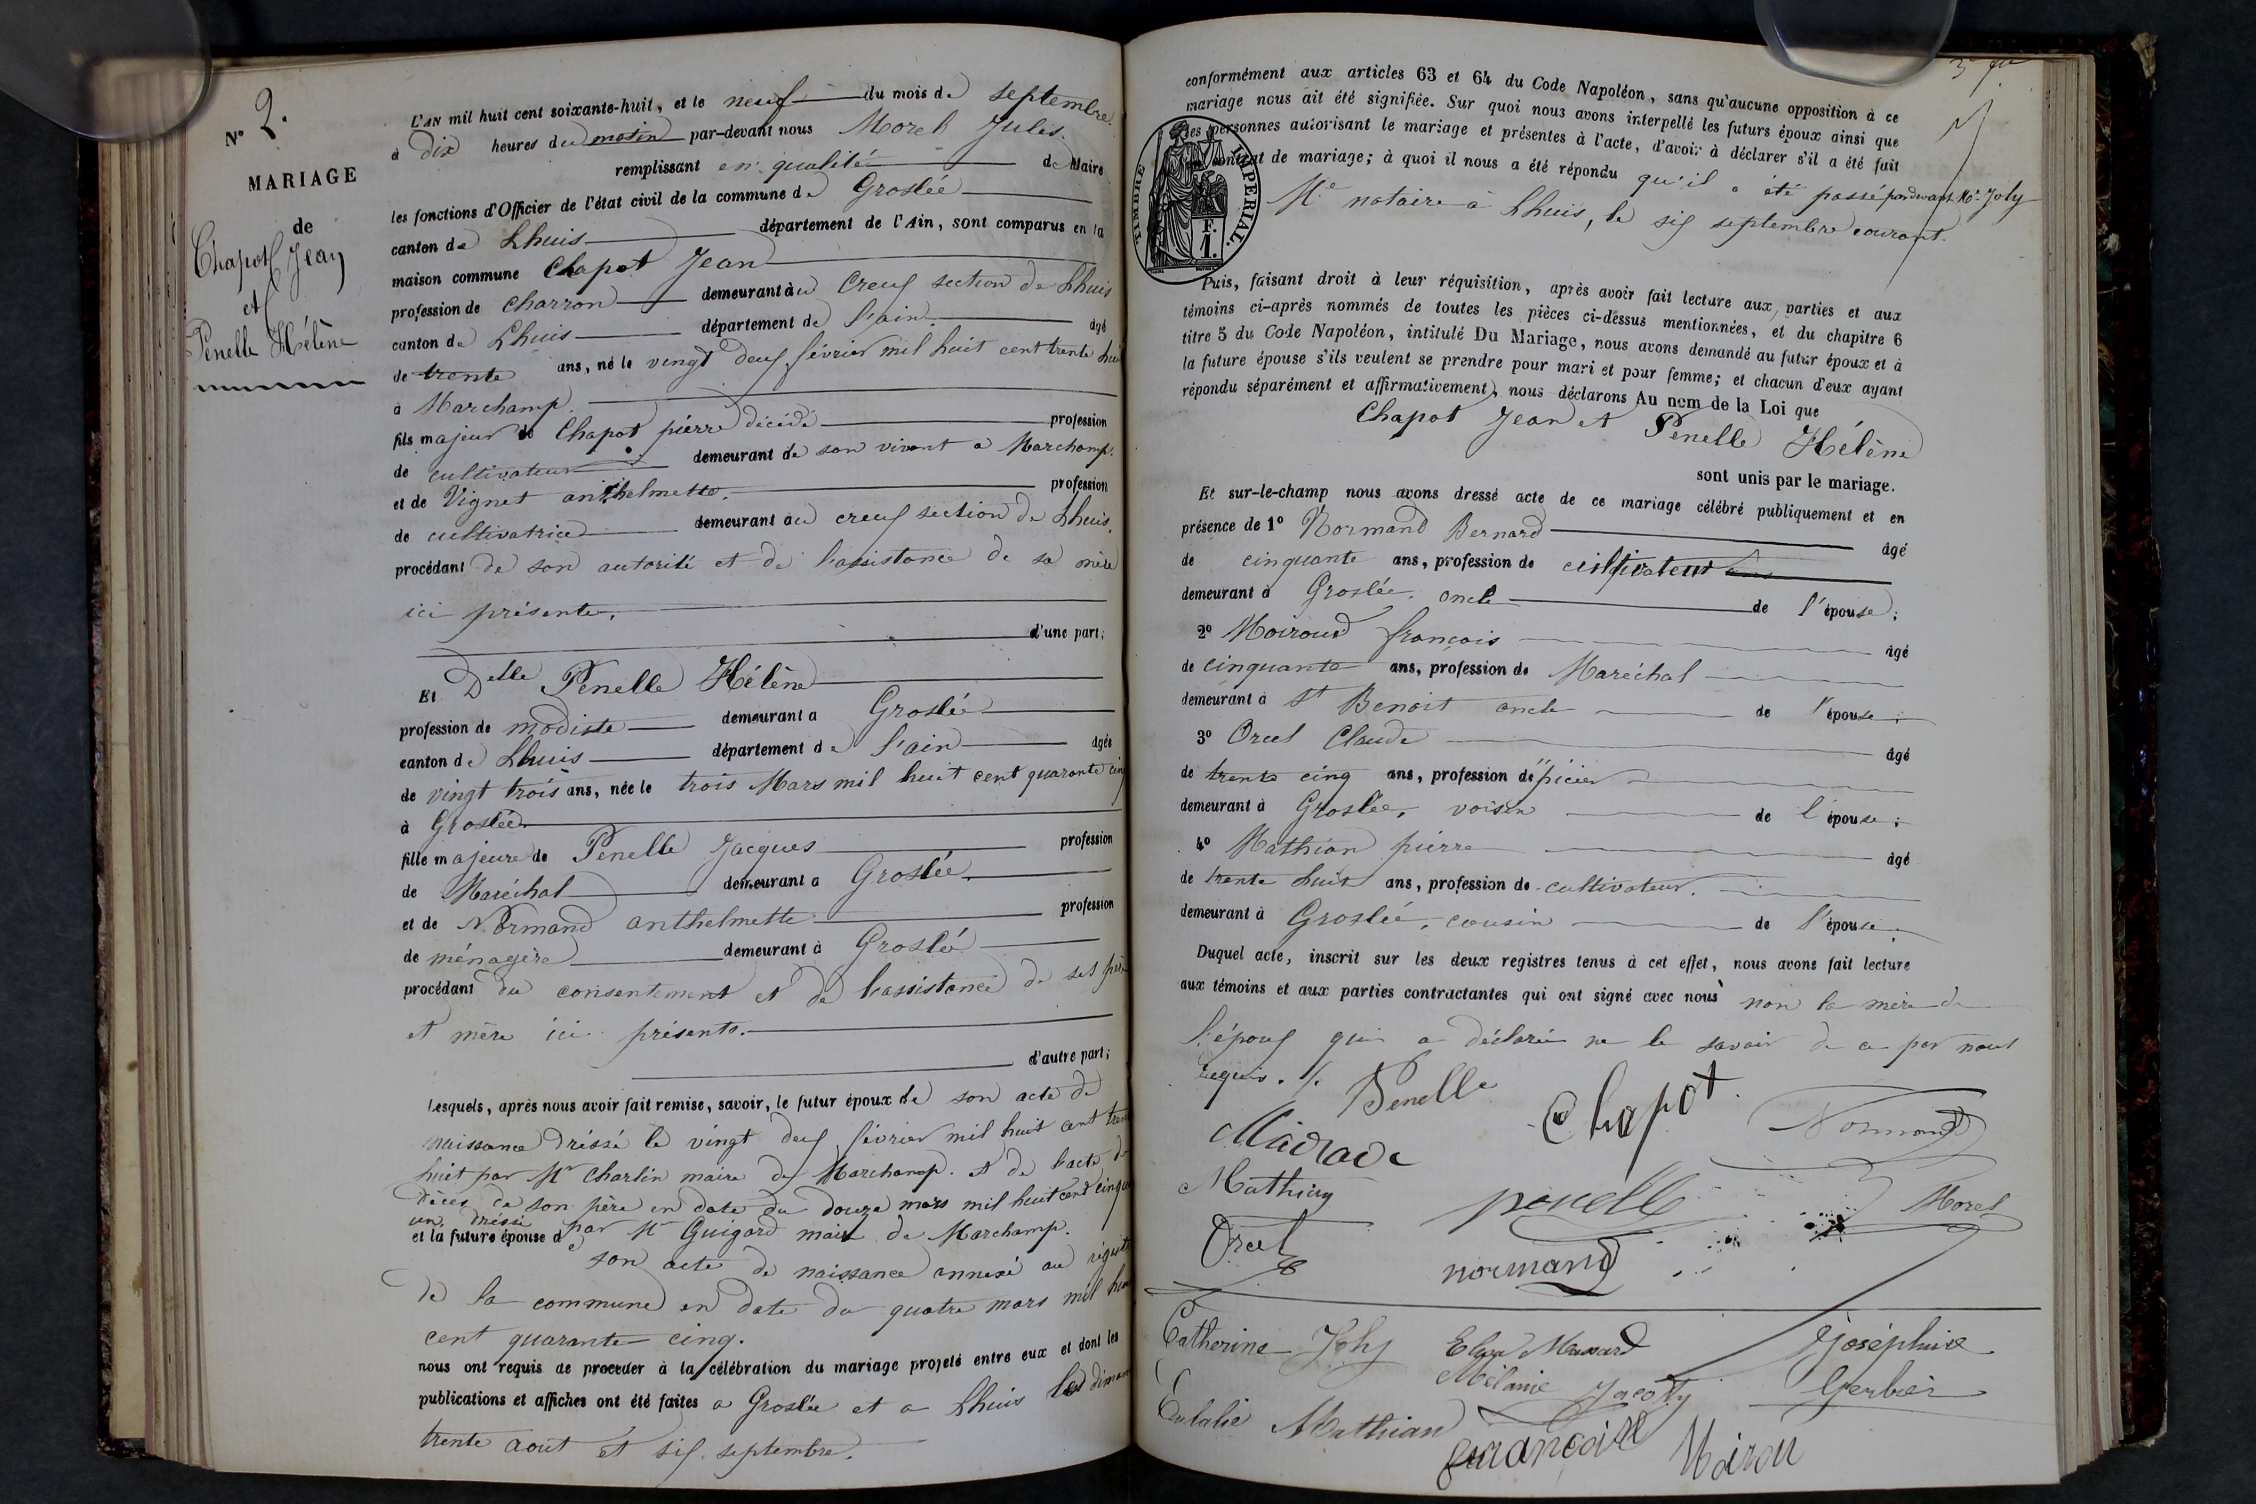 N° 2.
MARIAGE
de
Chapot Jean
et
Penelle Hélène
L'AN mil huit cent soixante-huit, et le neuf du mois de septembre
à dix heures du matin par-devant nous Morel Jules.
remplissant en qualité de Maire
les fonctions d'Officier de l'état civil de la commune de Groslée
canton de Lhuis département de l'Ain, sont comparus en la
maison commune Chapot Jean
profession de charron demeurant au Creux section de Lhuis
canton de Lhuis département de l'ain âgé
de trente ans, né le vingt deux février mil huit cent trente huit
à Marchamp.
fils majeur de Chapot pierre décédé profession
de cultivateur demeurant de son vivant a Marchamp.
et de Vignet anthelmette. profession
de cultivatrice demeurant au creux section de Lhuis.
procédant de son autorité et de l'assistance de sa mère
ici présente.
d'une part;
Et Delle Penelle Hélène
profession de modiste demeurant a Groslée
canton de Lhuis département de l'ain âgée
de vingt trois ans, née le trois Mars mil huit cent quarante cinq
à Groslée
fille majeure de Penelle Jacques profession
de Maréchal demeurant a Groslée.
et de Normand anthelmette profession
de ménagère demeurant à Groslée
procédant du consentement et de l'assistance de ses père
et mère ici présents.
d'autre part;
Lesquels, après nous avoir fait remise, savoir, le futur époux de son acte de
naissance dréssé le vingt deux février mil huit cent trente
huit par Mr Charlin maire de Marchamp. et de l'acte de
décès de son père en date du douze mars mil huit cent cinquante
un dréssé par Mr Guigard maire de Marchamp.
et la future épouse de son acte de naissance annexé au registre
de la commune en date du quatre mars mil huit
cent quarante cinq.
nous ont requis de procéder à la célébration du mariage projeté entre eux et dont les
publications et affiches ont été faites a Groslée et a Lhuis les dimanches
trente août et six septembre.
conformément aux articles 63 et 64 du Code Napoléon, sans qu'aucune opposition à ce
mariage nous ait été signifiée. Sur quoi nous avons interpellé les futurs époux ainsi que
les personnes autorisant le mariage et présentes à l'acte, d'avoir à déclarer s'il a été fait
un contrat de mariage; à quoi il nous a été répondu qu'il a été passé pardevant Me Joly
Me notaire a Lhuis, le six septembre courant.
TIMBRE IMPERIAL.
F.
1.
Puis, faisant droit à leur réquisition, après avoir fait lecture aux parties et aux
témoins ci-après nommés de toutes les pièces ci-dessus mentionnées, et du chapitre 6
titre 5 du Code Napoléon, intitulé Du Mariage, nous avons demandé au futur époux et à
la future épouse s'ils veulent se prendre pour mari et pour femme; et chacun d'eux ayant
répondu séparément et affirmativement, nous déclarons Au nom de la Loi que
Chapot Jean et Penelle Hélène
sont unis par le mariage.
Et sur-le-champ nous avons dressé acte de ce mariage célébré publiquement et en
présence de 1° Normand Bernard âgé
de cinquante ans, profession de cultivateur
demeurant à Groslée. oncle de l'épouse;
2° Moiroud françois âgé
de cinquante ans, profession de Maréchal
demeurant à St Benoit oncle de l'épouse;
3° Orcel Claude âgé
de trente cinq ans, profession d'épicier
demeurant à Groslée. voisin de l'épouse;
4° Mathian pierre âgé
de trente huit ans, profession de cultivateur.
demeurant à Groslée. cousin de l'épouse.
Duquel acte, inscrit sur les deux registres tenus à cet effet, nous avons fait lecture
aux témoins et aux parties contractantes qui ont signé avec nous non la mère de
l'époux qui a déclaré ne le savoir de ce par nous
requis.
Penelle Chapot Normand
Mathian penelle Morel
Orcel normand
Catherine Joly Josephine
Mélanie Jacoty Gerbier
Eulalie Mathian
françois Moirou